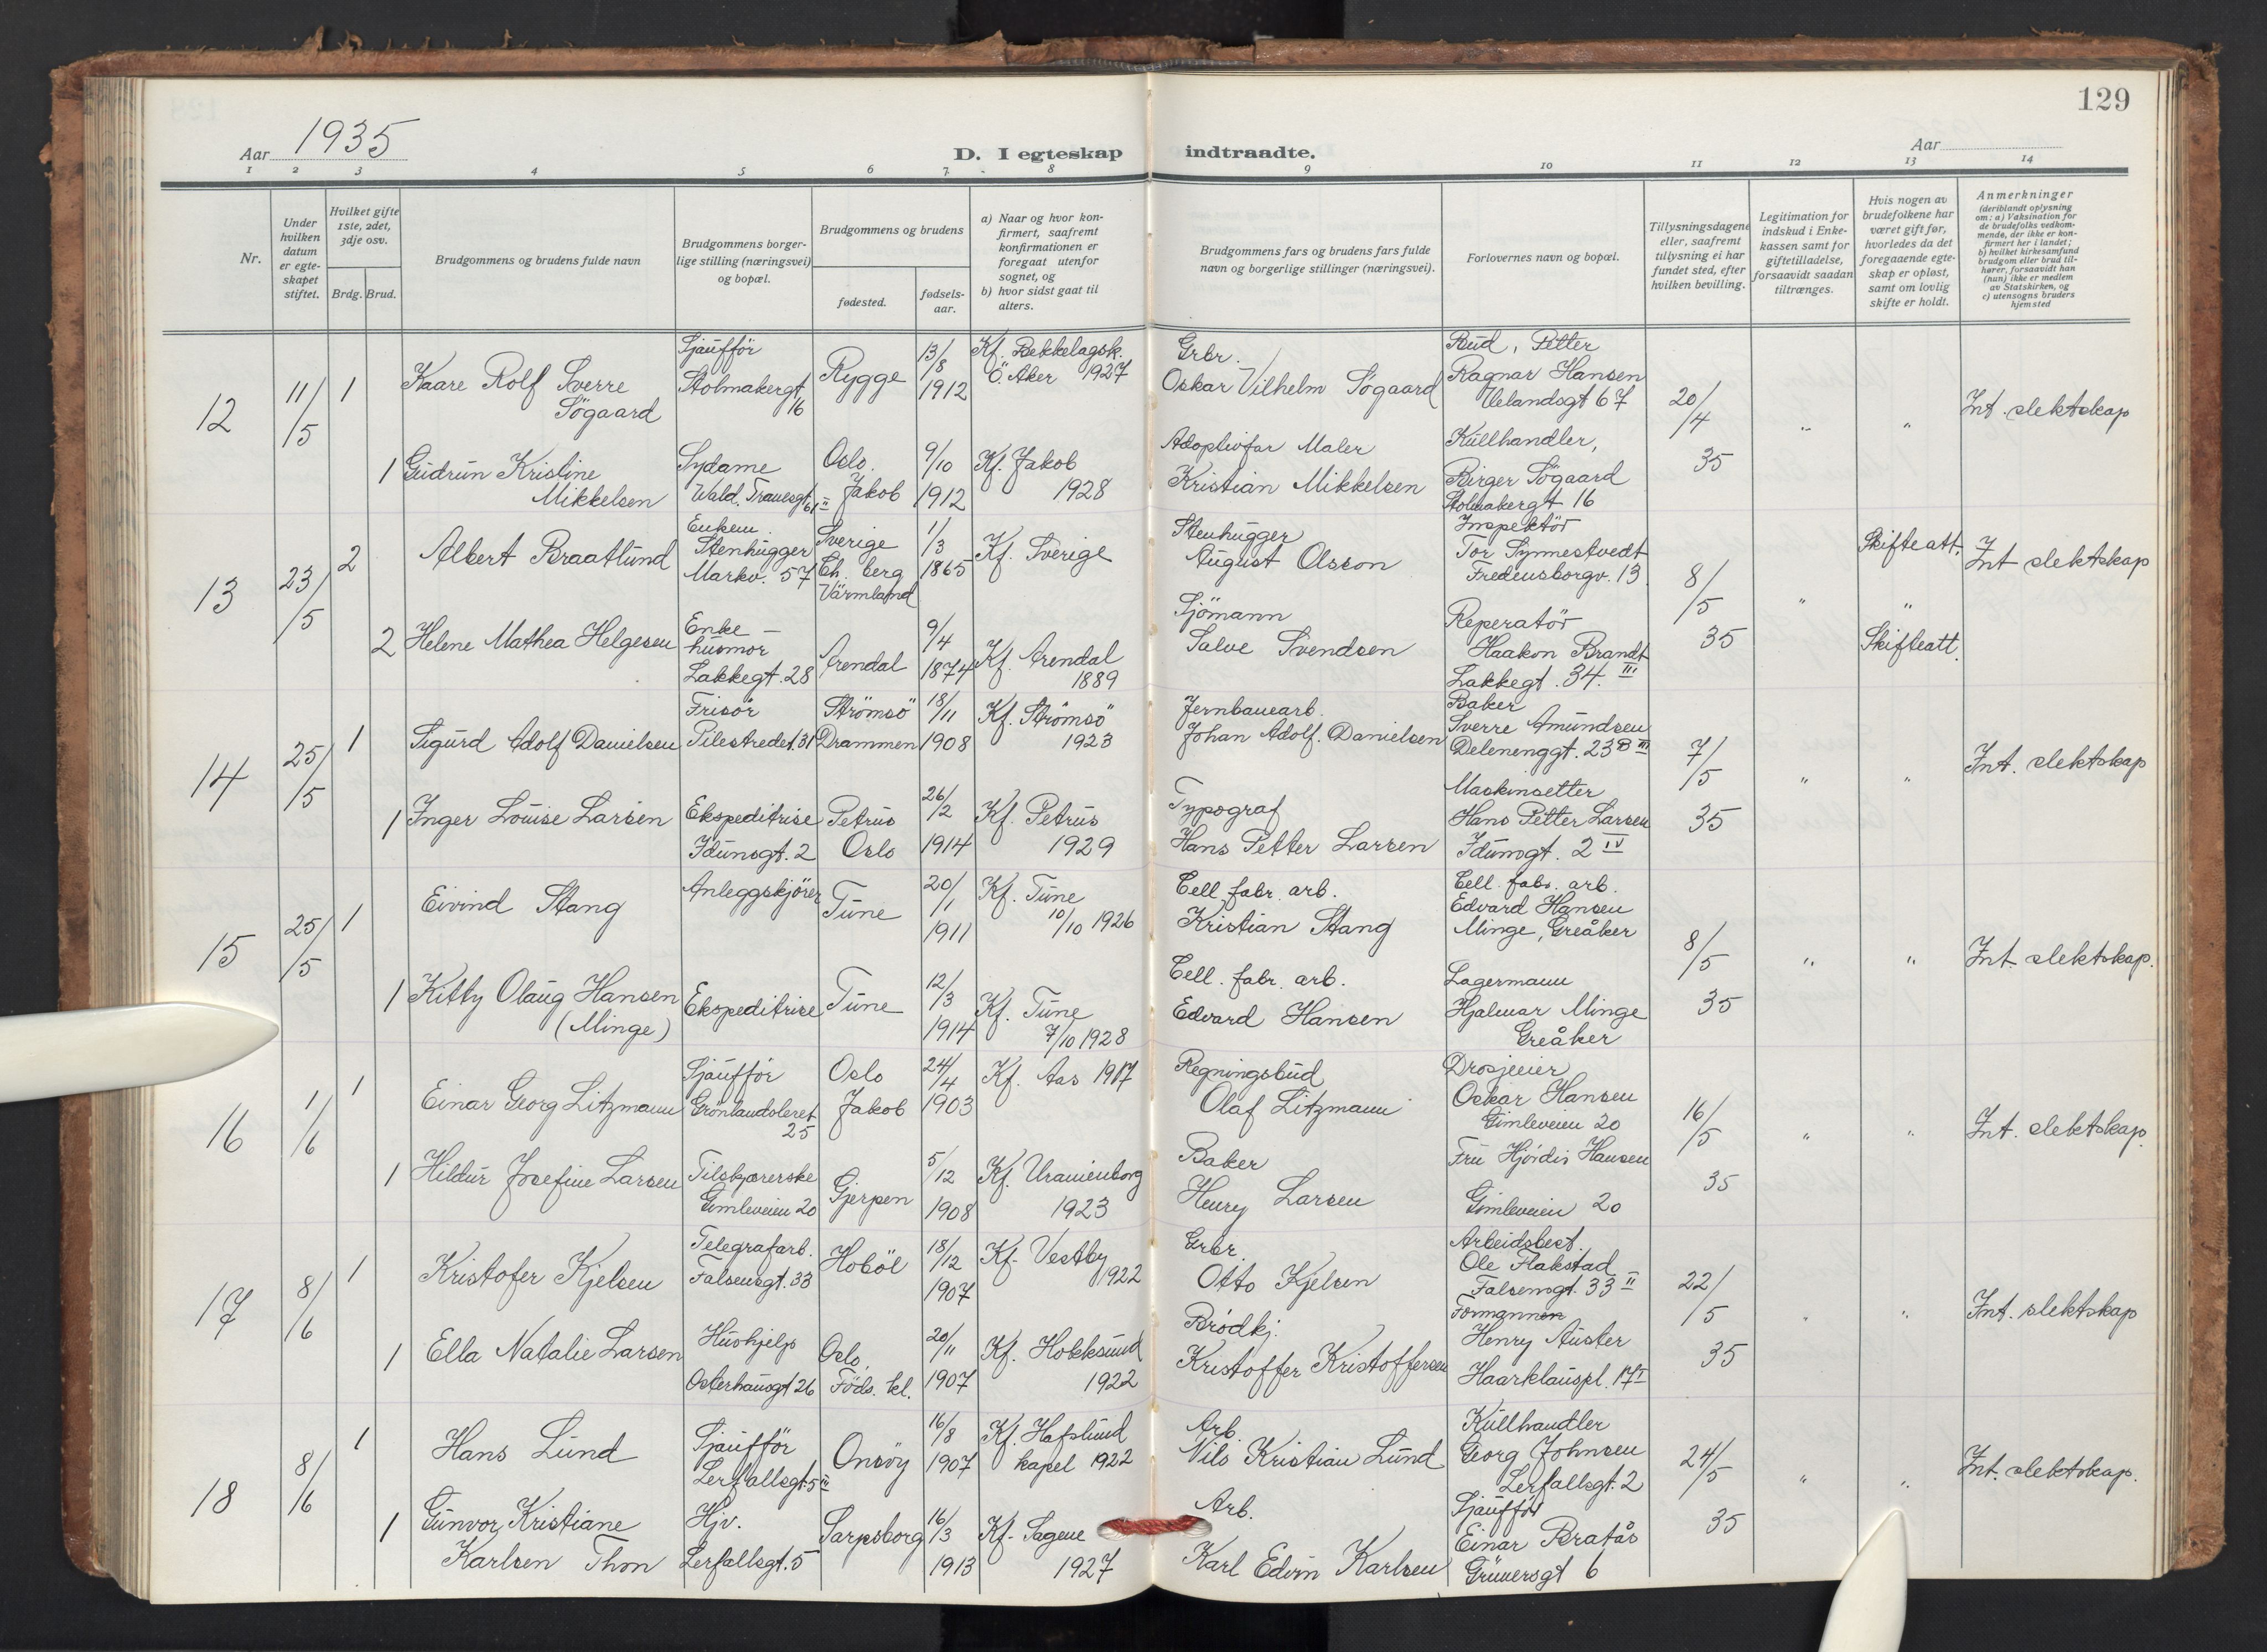 129
Aar 1935
D. I egteskap indtraadte.
Aar
1 2 3 4 5 6 7 8 9 10 11 12 13 14
Nr.
Under hvilken datum er egte-skapet stiftet.
Hvilket gifte 1ste, 2det, 3dje osv.
Brdg. Brud.
Brudgommens og brudens fulde navn
Brudgommens borger-lige stilling (næringsvei) og bopæl.
Brudgommens og brudens
fødested.
fødsels-aar.
a) Naar og hvor kon-firmert, saafremt konfirmationen er foregaat utenfor sognet, og
b) hvor sidst gaat til alters.
Brudgommens fars og brudens fars fulde navn og borgerlige stillinger (næringsvei).
Forlovernes navn og bopæl.
Tillysningsdagene eller, saafremt tillysning ei har fundet sted, efter hvilken bevilling.
Legitimation for indskud i Enke-kassen samt for giftetilladelse, forsaavidt saadan tiltrænges.
Hvis nogen av brudefolkene har været gift før, hvorledes da det foregaaende egte-skap er opløst, samt om lovlig skifte er holdt.
Anmerkninger
(deriblandt oplysning om: a) Vaksination for de brudefolks vedkom-mende, der ikke er kon-firmert her i landet; b) hvilket kirkesamfund brudgom eller brud til-hører, forsaavidt han (hun) ikke er medlem av Statskirken, og c) utensogns bruders hjemsted
12
11/5
1
Kaare Rolf Sverre
Sögaard
Sjaufför
Stolmakergt
16
Rygge
13/8
1912
Kf. Bekkelagsk.
Ö. Aker 1927
Grbr.
Oskar Vilhelm Sögaard
Bud, Petter
Ragnar Hansen
Velandsgt 67
20/4
35
"
"
Int. slektskap
1
Gudrun Kristine
Mikkelsen
Sydame
Wald. Tranesgt 61 II
Oslo.
Jakob
9/10
1912
Kf. Jakob
1928
Adoptivfar Maler
Kristian Mikkelsen
Kullhandler,
Birger Sögaard
Stolmakergt 16
13
23/5
2
Albert Braatlund
Enkem.
Stenhugger
Markv. 57
Sverige
Ch. berg
Värmland
1/3
1865
Kf. Sverige
Stenhugger
August Olsson
Inspektör
Tor Synnestvedt
Fredensborgv. 13
8/5
35
"
Skifteatt.
"
Int slektskap
2
Helene Mathea Helgesen
Enke -
husmor
Lakkegt. 28
Arendal
9/4
1874
Kf. Arendal
1889
Sjömann
Salve Svendsen
Reperatör
Haakon Brandt
Lakkegt. 34. III
Skifteatt.
14
25/5
1
Sigurd Adolf Danielsen
Frisör
Pilestredet. 31
Strömsö
Drammen
18/11
1908
Kf. Strömsö
1923
Jernbanearb.
Johan Adolf. Danielsen
Baker
Sverre Amundsen
Delenenggt. 23 B III
7/5
35
"
"
Int. slektskap
1
Inger Louise Larsen
Ekspeditrise
Idunsgt. 2
Petrus
Oslo
26/2
1914
Kf. Petrus
1929
Typograf
Hans Petter Larsen
Maskinsetter
Hans Petter Larsen
Idunsgt. 2 IV
15
25/5
1
Eivind Stang
Anleggskjörer
Tune
20/1
1911
Kf. Tune
10/10 1926
Cell. fabr. arb.
Kristian Stang
Cell. fabr. arb.
Edvard Hansen
Minge, Greåker
8/5
35
"
"
Int. slektskap.
1
Kitty Olaug Hansen
(Minge)
Ekspeditrise
Tune
12/3
1914
Kf. Tune
7/10 1928
Cell. fabr. arb.
Edvard Hansen
Lagermann
Hjalmar Minge
Greåker
16
1/6
1
Einar Georg Litzmann
Sjaufför
Grönlandsleret
25
Oslo
Jakob
24/4
1903
Kf. Aas 1917
Regningsbud
Olaf Litzmann
Drosjeeier
Oskar Hansen
Gimleveien 20
16/5
35
"
"
Int. slektskap.
1
Hildur Josefine Larsen
Tilskjærerske
Gimleveien 20
Gjerpen
5/12
1908
Kf. Uranienborg
1923
Baker
Henry Larsen
Fru Hjördis Hansen
Gimleveien 20
17
8/6
1
Kristofer Kjelsen
Telegrafarb.
Falsensgt. 33
Hoböl
18/12
1907
Kf. Vestby
1922
Grbr.
Otto Kjelsen
Arbeidsbest.
Ole Flakstad
Falsensgt. 33 II
22/5
35
"
"
Int. slektskap
1
Ella Natalie Larsen
Hushjelp
Osterhausgt 26
Oslo.
Föds. kl.
20/11
1907
Kf. Hokksund
1922
Brödkj.
Kristoffer Kristoffersen
Formannen
Henry Auster
Haarklauspl. 17 I
18
8/6
1
Hans Lund
Sjaufför
Lerfallsgt. 5 III
Onsöy
16/8
1907
Kf. Hafslund
kapel 1922
Arb.
Nils Kristian Lund
Kullhandler
Georg Johnsen
Lerfallsgt. 2
24/5
35
"
"
Int. slektskap.
1
Gunvor Kristiane
Karlsen Thon
Hjv.
Lerfallsgt. 5
Sarpsborg
16/3
1913
Kf. Sagene
1927
Arb.
Karl Edvin Karlsen
Sjaufför
Einar Bratås
Grünersgt 6